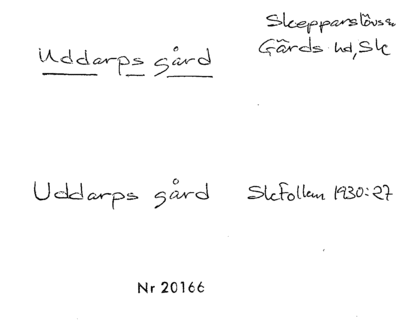 Skepparslövs sn
Uddarps gård Gärds hd, Sk
Uddarps gård SkFollm 1930:27
Nr 20166